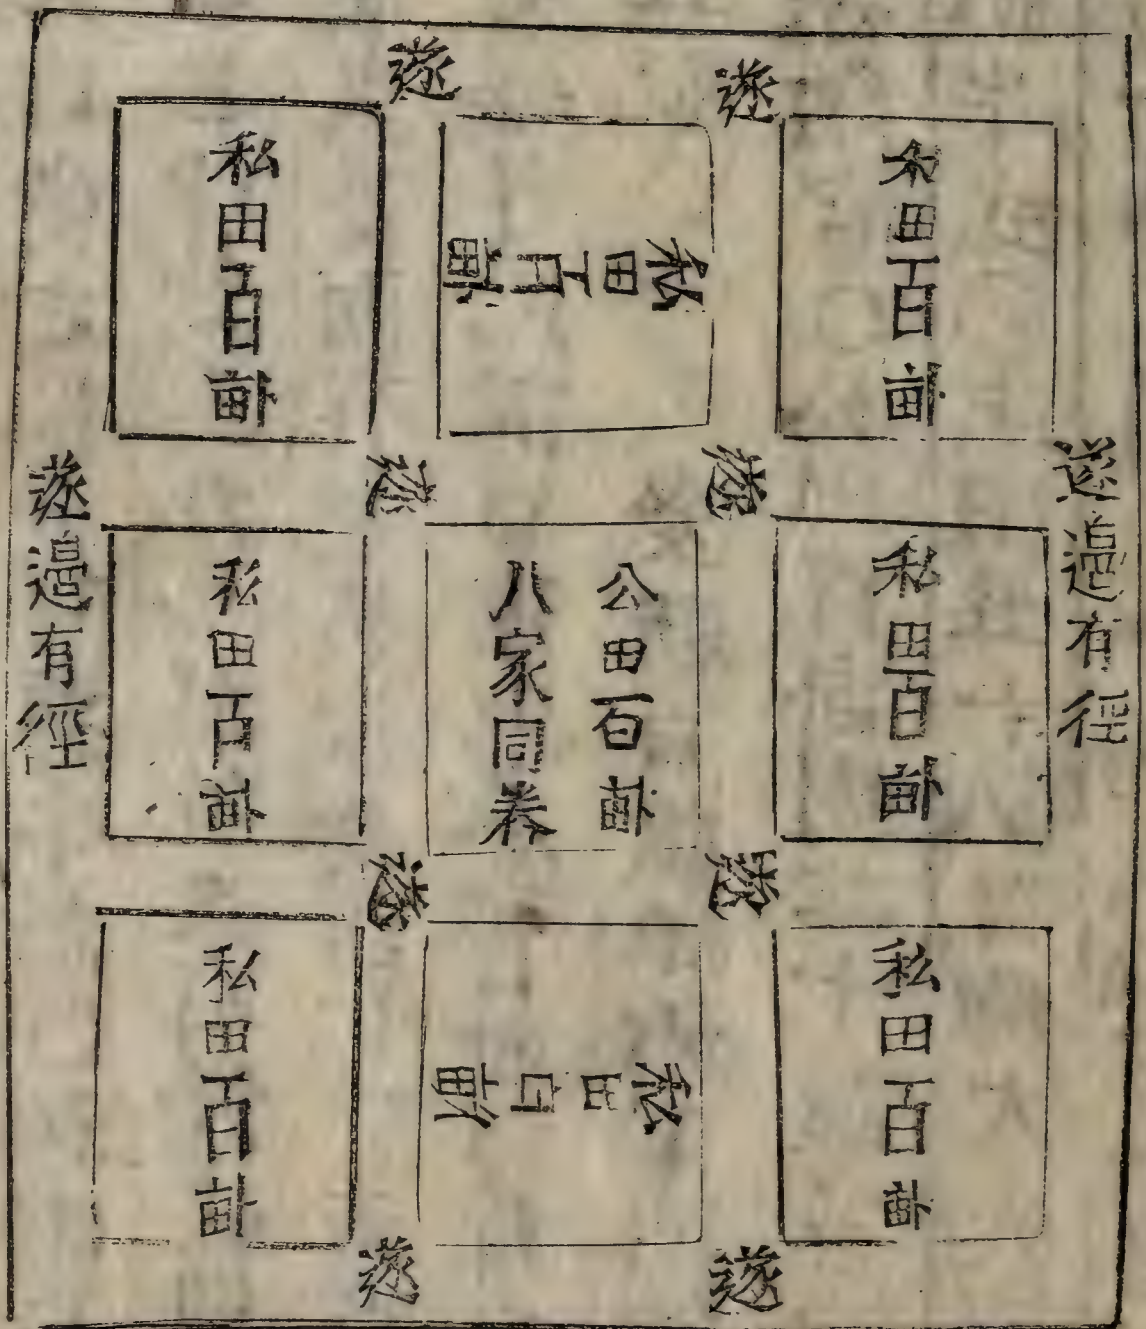 遂
遂
私田百畝
私田百畝
私田百畝
遂邉有徑
遂
遂
遂邉有徑
私田百畝
公田百畝
八家同养
私田百畝
遂
遂
私田百畝
私田百畝
私田百畝
遂
遂